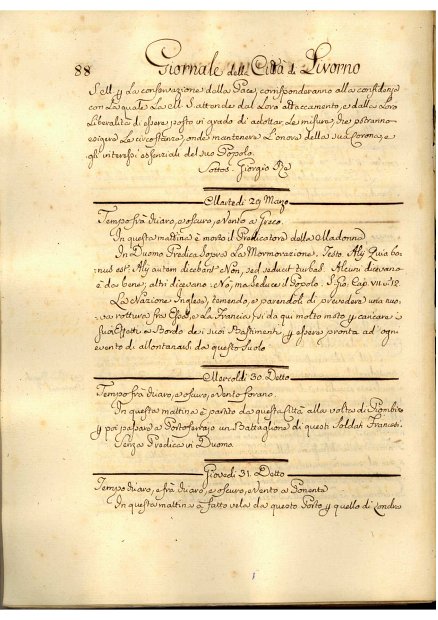 88 Giornale della Città di Livorno
S. M. p. la conservazione della Pace, corrisponderanno alla confidenza
con la quale La M. S. attende dal Loro attaccamento, e dalla Loro
Liberalità di essere posto in grado di adottar Le misure, che potranno
esigere Le circostanze, onde mantenere L'onore della sua Corona, e
gli interessi essenziali del suo Popolo.
Sottos. Giorgio Re
Martedì 29 Marzo
Tempo frà chiaro, e oscuro, e Vento a Greco.
In questa mattina è morto il Predicatore della Madonna
In Duomo Predica sopra La Mormorazione. Testo. Alij Quia bo:
:nus est: Alij autem dicebant Non, sed seducit turbas. Alcuni dicevano
è da bene; altri dicevano: Nò, ma seduce il Popolo. S. Gio. Cap. VII. v. 12.
La Nazione Inglese, temendo, e parendoli di prevedere una nuo:
:va rottura fra Essa, e La Francia, si dà qui molto moto p. caricare i
suoi Effetti a Bordo dei suoi Bastimenti p. essere pronta ad ogni
evento di allontanarsi da questo suolo.
Mercoldì 30 Detto
Tempo frà chiaro, e oscuro, e Vento forano.
In questa mattina è partito da questa Città alla volta di Piombino
p. poi passare a Portoferrajo un Battaglione di questi Soldati Francesi.
Senza Predica in Duomo.
Giovedì 31. Detto
Tempo chiaro, e frà chiaro, e oscuro, e Vento a Ponente
In questa mattina à fatto vela da questo Porto p. quello di Londra